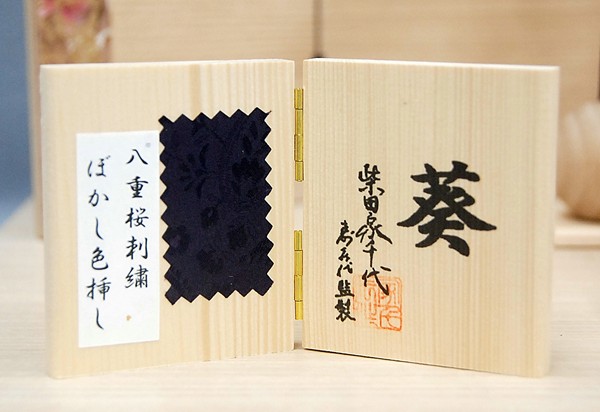 八重桜刺繍
ぼかし色挿し
葵
柴田家千代
監製